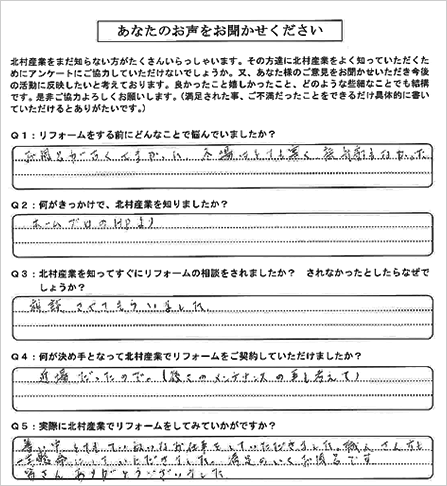 あなたのお声をお聞かせください
北村産業をまだ知らない方がたくさんいらっしゃいます。その方達に北村産業をよく知っていただくた
めにアンケートにご協力していただけないでしょうか。又、あなた様のご意見をお聞かせいただき今後
の活動に反映したいと考えております。良かったこと嬉しかったこと、どのような些細なことでも結構
です。是非ご協力よろしくお願いします。(満足された事、ご不満だったことをできるだけ具体的に書い
ていただけるとありがたいです。)
Q1:リフォームをする前にどんなことで悩んでいましたか?
お風呂が古くて寒かった 冬場はとても寒く
Q2:何がきっかけで、北村産業を知りましたか?
ホームプロのHPより
Q3:北村産業を知ってすぐにリフォームの相談をされましたか? されなかったとしたらなぜで
しょうか?
相談させてもらいました
Q4:何が決め手となって北村産業でリフォームをご契約していただけましたか?
近場だったので。(後々のメンテナンスの事も考えて)
Q5:実際に北村産業でリフォームをしてみていかがですか?
暑い中とても お仕事をしていただきました 職人さん方も
一生懸命にしていただきました。満足のいくお風呂です
皆さんありがとうございました